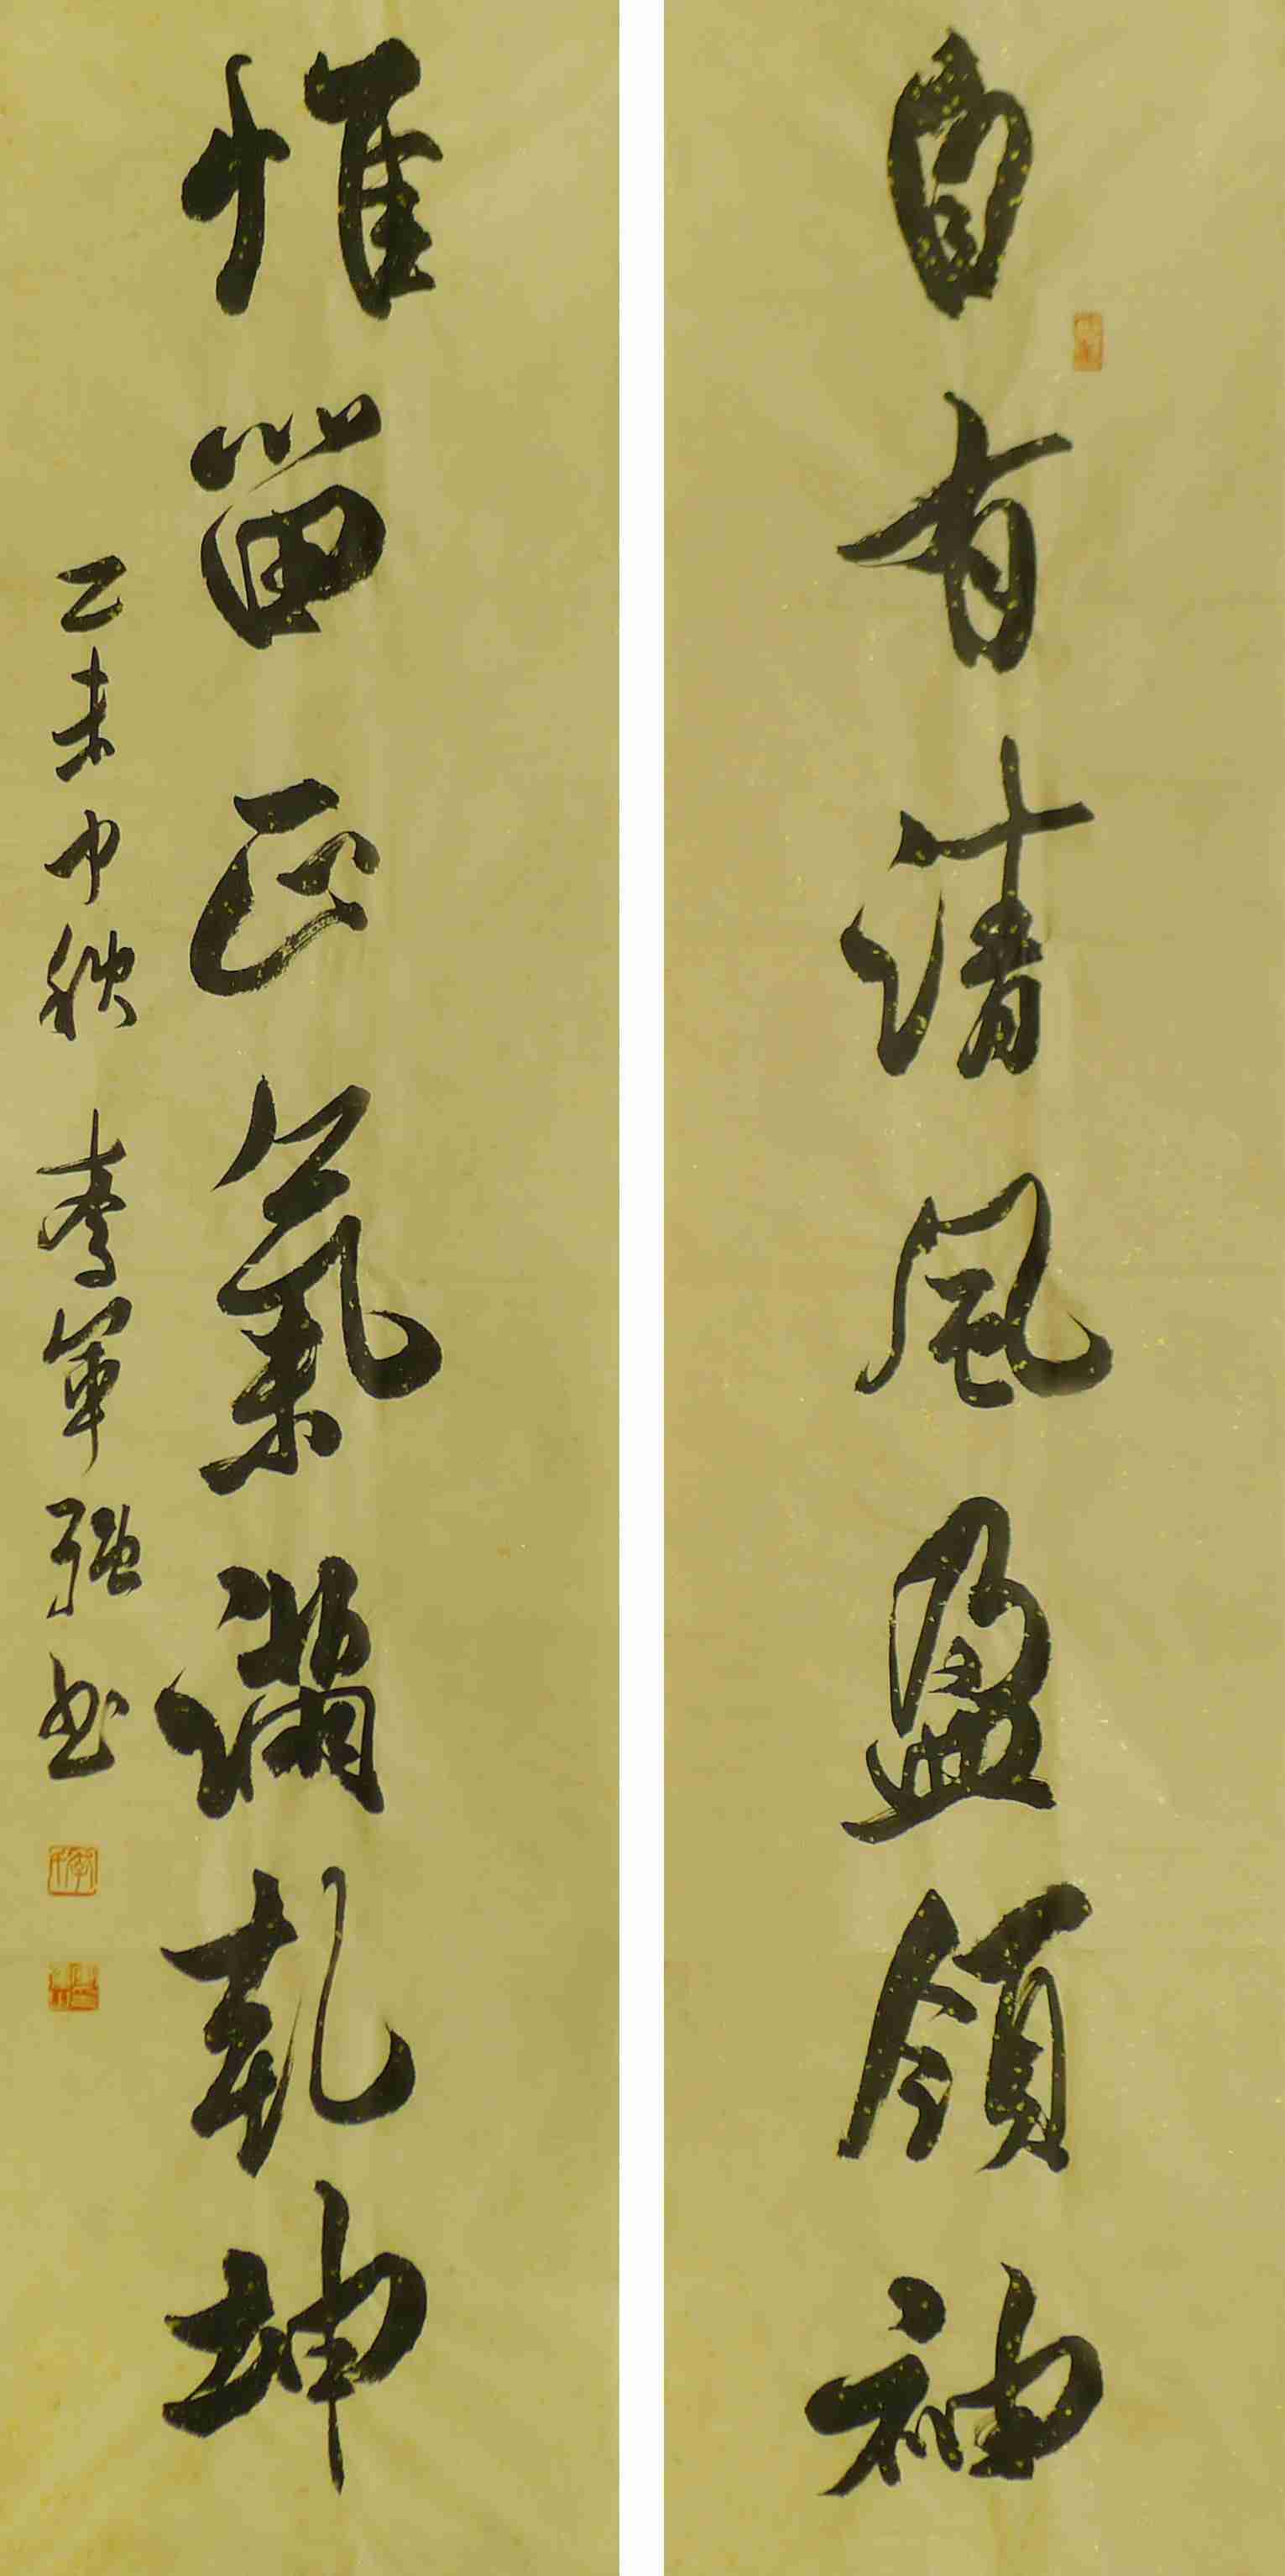 自有清风盈領袖
惟留正氣滿乾坤
乙未中秋 李軍强书